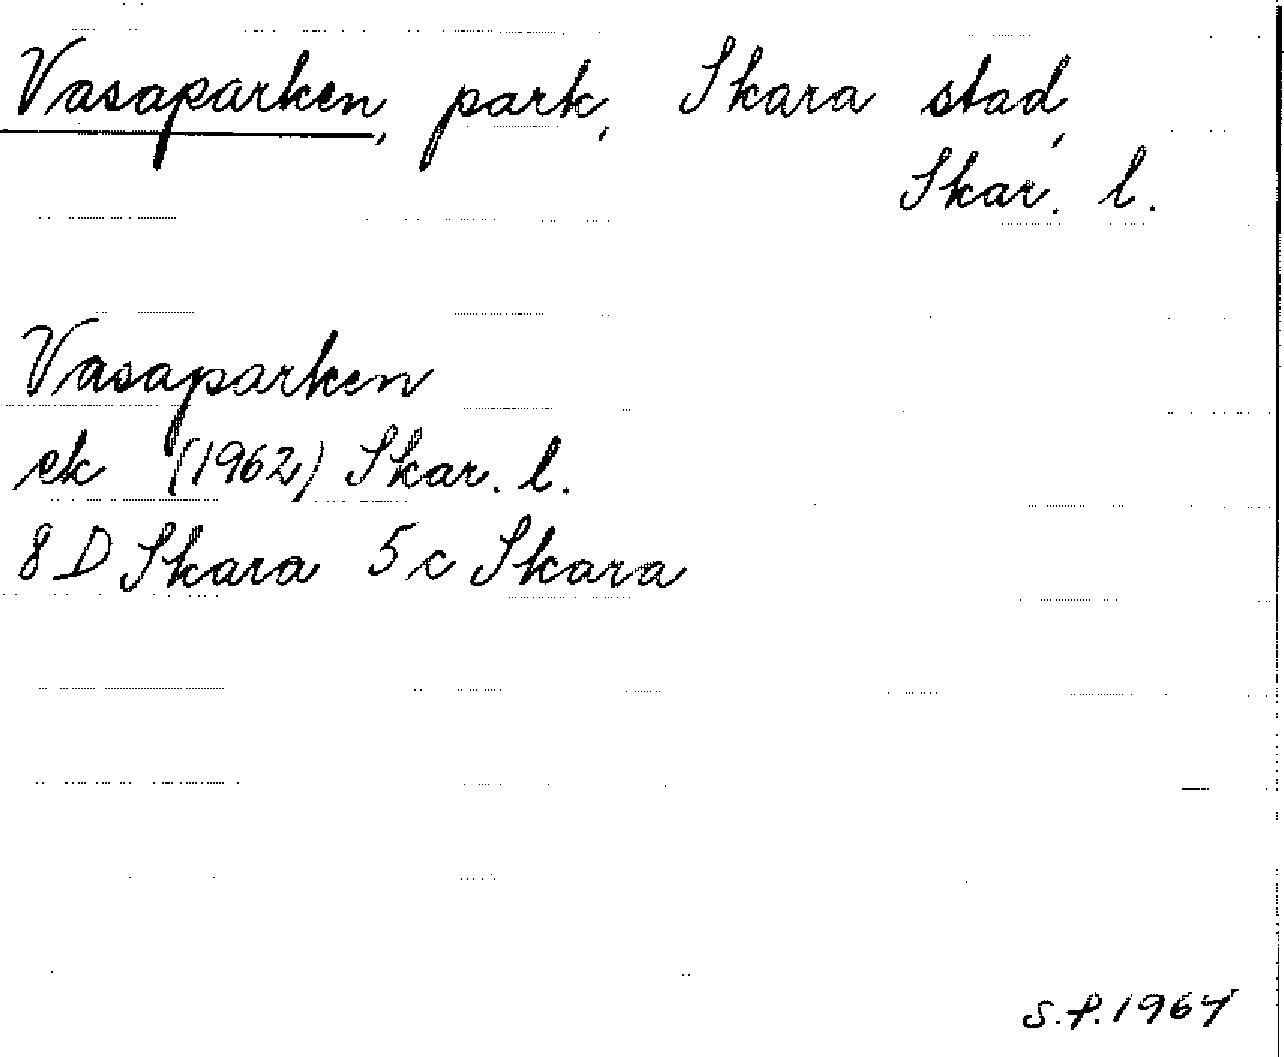 Vasaparken, park, Skara stad,
Skar. l.
Vasaparken
ek (1962) Skar. l.
8 D Skara 5 c Skara
S.P. 1967